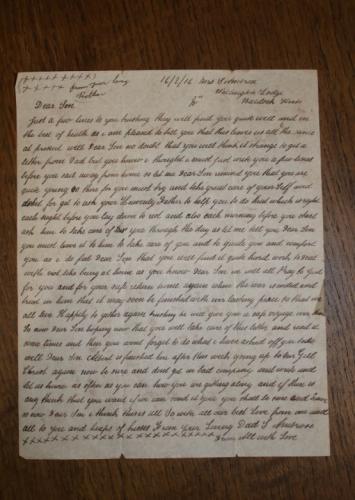 (x x x x x x x x)
x x x x x from your loving
Father
16/2/16 Mrs S Ambrose
Wellington Lodge
Baldock Herts
Dear Son
Just a few lines to you trusting they will find you quite well and in
the best of health as i am pleased to tell you that this leaves us all the same
at present well Dear Son no doubt that you will think it strange to get a
letter from Dad but you know i thought i must just write you a few lines
before you sail away from home so let me Dear Son remind you that you are
quite young so there for you must try and take great care of your self and
dont for get to ask your Heavenly Father to help you to do that which is right
each night before you lay down to rest and also each morning before you start
ask him to take care of you through the day so let me tell you Dear Son
you must leave it to him to take care of you and to guide you and comfort
you as i do feel Dear Son that you will find it quite hard work to deal
with not like being at home as you know Dear Son we will all Pray to God
for you and for your safe return home again when the war is ended and
trust in him that it may soon be finished with ever lasting peace so that we
all be Happily to gether again trusting he will give you a safe voyage over
So now Dear Son hoping now that you will take care of this letter and read it
some times and then you wont forget to do what i have asked off you
well Dear Son Albert is finished here after this week going up to
again now be sure and dont go in bad company and write and
let us know as often as you can how you are getting along and if there is
any think that you want if we can send it you you shall be sure and have it
so now Dear Son i think this is all So with all our best Love from one and
all to you and heaps of kisses From your Loving Dad S Ambrose
x x x x x x x x x x x x x x x x x x x x x x From All with Love